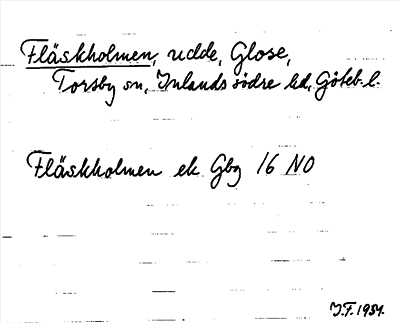 Fläskholmen, udde, Glose,
Torsby sn, Inlands södre hd, Göteb. l.
Fläskholmen ek Gbg 16 NO
J.F. 1934.